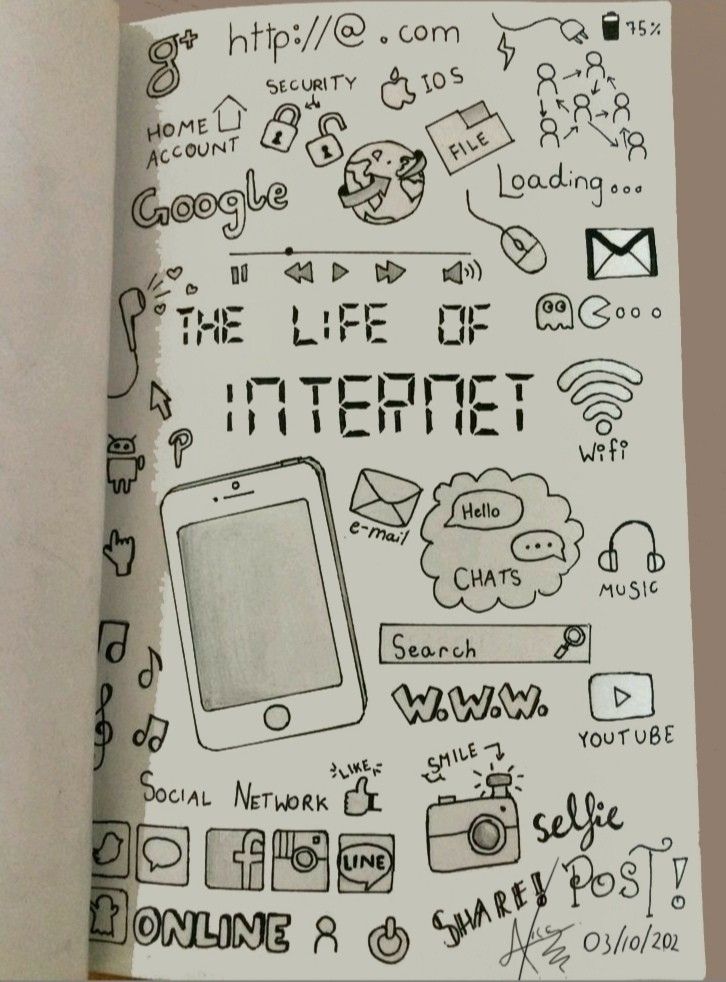 g+
http://@.com
75%
SECURITY
IOS
HOME
ACCOUNT
FILE
Google
Loading...
THE LIFE OF
INTERNET
Wifi
e-mail
Hello
...
CHATS
MUSIC
Search
W.W.W.
YOUTUBE
SMILE
LIKE
SOCIAL NETWORK
selfie
f
LINE
POST!
SHARE!
ONLINE
03/10/202